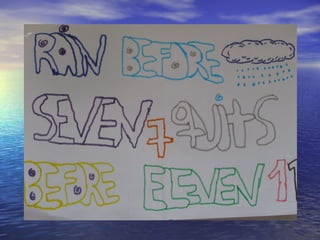 RAIN BEFORE
SEVEN 7 QUITS
BEFORE ELEVEN 11